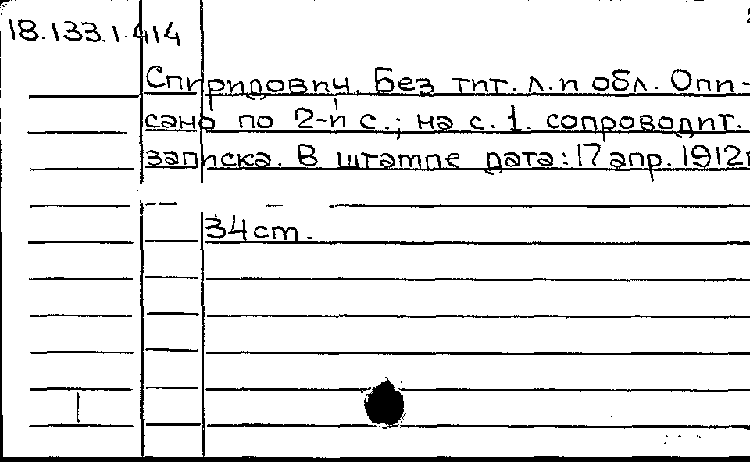 18.133.1.414
Спиридович. Без тит. л. и обл. Опи-
сано по 2-й с.; на с. 1. сопроводит.
записка. В штампе дата: 17 апр. 1912г
34 ст.